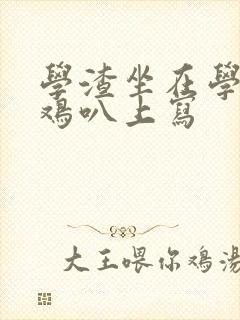 學渣坐在學
鸡叭上寫
大王喂你鸡湯